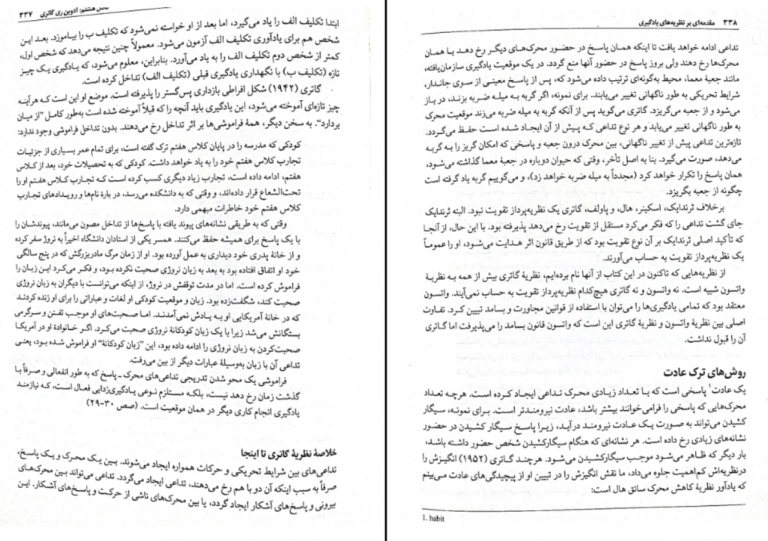 فصل هشتم: ادوین ری گاتری ۲۳۷
ابتدا تکلیف الف را یاد می‌گیرد، اما بعد از او خواسته نمی‌شود که تکلیف ب را بیاموزد. بعد این
شخص هم برای یادآوری تکلیف الف آزمون می‌شود. معمولاً چنین نتیجه می‌دهد که شخص اول،
کمتر از شخص دوم تکلیف الف را به یاد می‌آورد. بنابراین، معلوم می‌شود، که یادگیری یک چیز
تازه (تکلیف ب) با نگهداری یادگیری قبلی (تکلیف الف) تداخل کرده است.
گاتری (۱۹۴۲) شکل افراطی بازداری پس‌گستر را پذیرفته است. موضع او این است که هرآینه
چیز تازه‌ای آموخته می‌شود، این یادگیری باید آنچه را که قبلاً آموخته شده است به‌طور کامل "از میان
بردارد". به سخن دیگر، همهٔ فراموشی‌ها بر اثر تداخل رخ می‌دهند. بدون تداخل فراموشی وجود ندارد:
کودکی که مدرسه را در پایان کلاس هفتم ترک گفته است، برای تمام عمر بسیاری از جزئیات
تجارب کلاس هفتم خود را به یاد خواهد داشت. کودکی که به تحصیلات خود، بعد از کلاس
هفتم، ادامه داده است، تجارب زیاد دیگری کسب کرده است که تجارب کلاس هفتم او را
تحت‌الشعاع قرار داده‌اند، و وقتی که به دانشکده می‌رسد، در بارهٔ نام‌ها و رویدادهای تجارب
کلاس هفتم خود خاطرات مبهمی دارد.
وقتی که به طریقی نشانه‌های پیوند یافته با پاسخ‌ها از تداخل مصون می‌مانند، پیوندشان را
با یک پاسخ برای همیشه حفظ می‌کنند. همسر یکی از استادان دانشگاه اخیراً به نروژ سفر کرده
و از خانهٔ پدری خود دیداری به عمل آورده بود. او از زمان مرگ مادربزرگش که در پنج سالگی
خود او اتفاق افتاده بود به بعد به زبان نروژی صحبت نکرده بود، و فکر می‌کرد این زبان را
فراموش کرده است. اما در مدت توقفش در نروژ، از اینکه می‌توانست با دیگران به زبان نروژی
صحبت کند، شگفت‌زده بود. زبان و موقعیت کودکی او لغات و عباراتی را برای او زنده کردند
که در خانهٔ آمریکایی او به یادش نمی‌آمدند. اما صحبت‌های او موجب تفنن و سرگرمی
بستگانش می‌شد زیرا با یک زبان کودکانهٔ نروژی صحبت می‌کرد. اگر خانوادهٔ او در آمریکا
صحبت‌کردن به زبان نروژی را ادامه داده بود، این "زبان کودکانه" او فراموش شده بود، یعنی
تداعی آن با زبان به‌وسیلهٔ عبارات دیگر از بین می‌رفت.
فراموشی یک محو شدن تدریجی تداعی‌های محرک ـ پاسخ که به طور انفعالی و صرفاً با
گذشت زمان رخ دهد نیست، بلکه مستلزم نوعی یادگیری‌زدایی فعال است، که نیازمند
یادگیری انجام کاری دیگر در همان موقعیت است. (صص ۳۰-۲۹)
خلاصهٔ نظریهٔ گاتری تا اینجا
تداعی‌های بین شرایط تحریکی و حرکات همواره ایجاد می‌شوند. بین یک محرک و یک پاسخ،
صرفاً به سبب اینکه آن دو با هم رخ می‌دهند، تداعی ایجاد می‌گردد. تداعی می‌تواند بین محرک‌های
بیرونی و پاسخ‌های آشکار ایجاد گردد، یا بین محرک‌های ناشی از حرکت و پاسخ‌های آشکار. این
۲۳۸ مقدمه‌ای بر نظریه‌های یادگیری
تداعی ادامه خواهد یافت تا اینکه همان پاسخ در حضور محرک‌های دیگر رخ دهد یا همان
محرک‌ها رخ دهند ولی بروز پاسخ در حضور آنها منع گردد. در یک موقعیت یادگیری سازمان‌یافته،
مانند جعبه معما، محیط به‌گونه‌ای ترتیب داده می‌شود که، پس از پاسخ معینی از سوی جاندار،
شرایط تحریکی به طور ناگهانی تغییر می‌یابند. برای نمونه، اگر گربه به میله ضربه بزند، در باز
می‌شود و از جعبه می‌گریزد. گاتری می‌گوید پس از آنکه گربه به میله ضربه می‌زند موقعیت محرک
به طور ناگهانی تغییر می‌یابد و هر نوع تداعی که پیش از آن ایجاد شده است حفظ می‌گردد.
تازه‌ترین تداعی پیش از تغییر ناگهانی، بین محرک درون جعبه و پاسخی که امکان گریز را به گربه
می‌دهد، صورت می‌گیرد. بنا به اصل تأخر، وقتی که حیوان دوباره در جعبهٔ معما گذاشته می‌شود،
همان پاسخ را تکرار خواهد کرد (مجدداً به میله ضربه خواهد زد)، و می‌گوییم گربه یاد گرفته است
چگونه از جعبه بگریزد.
برخلاف ثرندایک، اسکینر، هال، و پاولف، گاتری یک نظریه‌پرداز تقویت نبود. البته ثرندایک
جای گشت تداعی را که فکر می‌کرد مستقل از تقویت رخ می‌دهد پذیرفته بود. با این حال، از آنجا
که تأکید اصلی ثرندایک بر آن نوع تقویت بود که از طریق قانون اثر هدایت می‌شود، او را عموماً
یک نظریه‌پرداز تقویت به حساب می‌آورند.
از نظریه‌هایی که تاکنون در این کتاب از آنها نام برده‌ایم، نظریهٔ گاتری بیش از همه به نظریهٔ
واتسون شبیه است. نه واتسون و نه گاتری هیچ‌کدام نظریه‌پرداز تقویت به حساب نمی‌آیند. واتسون
معتقد بود که تمامی یادگیری‌ها را می‌توان با استفاده از قوانین مجاورت و بسامد تبیین کرد. تفاوت
اصلی بین نظریهٔ واتسون و نظریهٔ گاتری این است که واتسون قانون بسامد را می‌پذیرفت اما گاتری
آن را قبول نداشت.
روش‌های ترک عادت
یک عادت¹ پاسخی است که با تعداد زیادی محرک تداعی ایجاد کرده است. هرچه تعداد
محرک‌هایی که پاسخی را فرامی‌خوانند بیشتر باشد، عادت نیرومندتر است. برای نمونه، سیگار
کشیدن می‌تواند به صورت یک عادت نیرومند درآید، زیرا پاسخ سیگار کشیدن در حضور
نشانه‌های زیادی رخ داده است. هر نشانه‌ای که هنگام سیگارکشیدن شخص حضور داشته باشد،
بار دیگر که ظاهر می‌شود موجب سیگارکشیدن می‌شود. هرچند گاتری (۱۹۵۲) انگیزش را
درنظریه‌اش کم‌اهمیت جلوه می‌داد، ما نقش انگیزش را در تبیین او از پیچیدگی‌های عادت می‌بینم
که یادآور نظریهٔ کاهش محرک سائق هال است:
1. habit